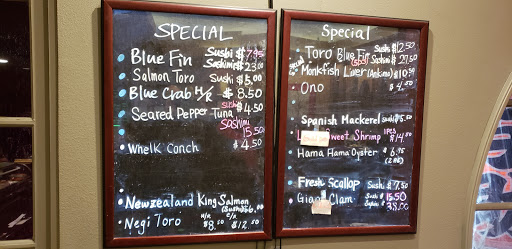 SPECIAL
Blue Fin Sushi $7.95
Sashimi $23.00
Salmon Toro Sushi $5.00
Blue Crab H/R $8.50
Seared Pepper Tuna Sushi $4.50
Sashimi 15.50
Whelk Conch $4.50
Newzealand King Salmon
(Sushi) $6.00
Negi Toro H/R $8. C/R $12.50
Special
Toro Blue Fin Sushi $12.50
Monkfish Liver (Ankimo)
Ono $4.50
Spanish Mackerel Sushi $5.50
Sweet Shrimp 1PCS $14.50
Hama Hama Oyster $6.95
Fresh Scallop Sushi $7.50
Giant Clam Sushi $15.50
38.00